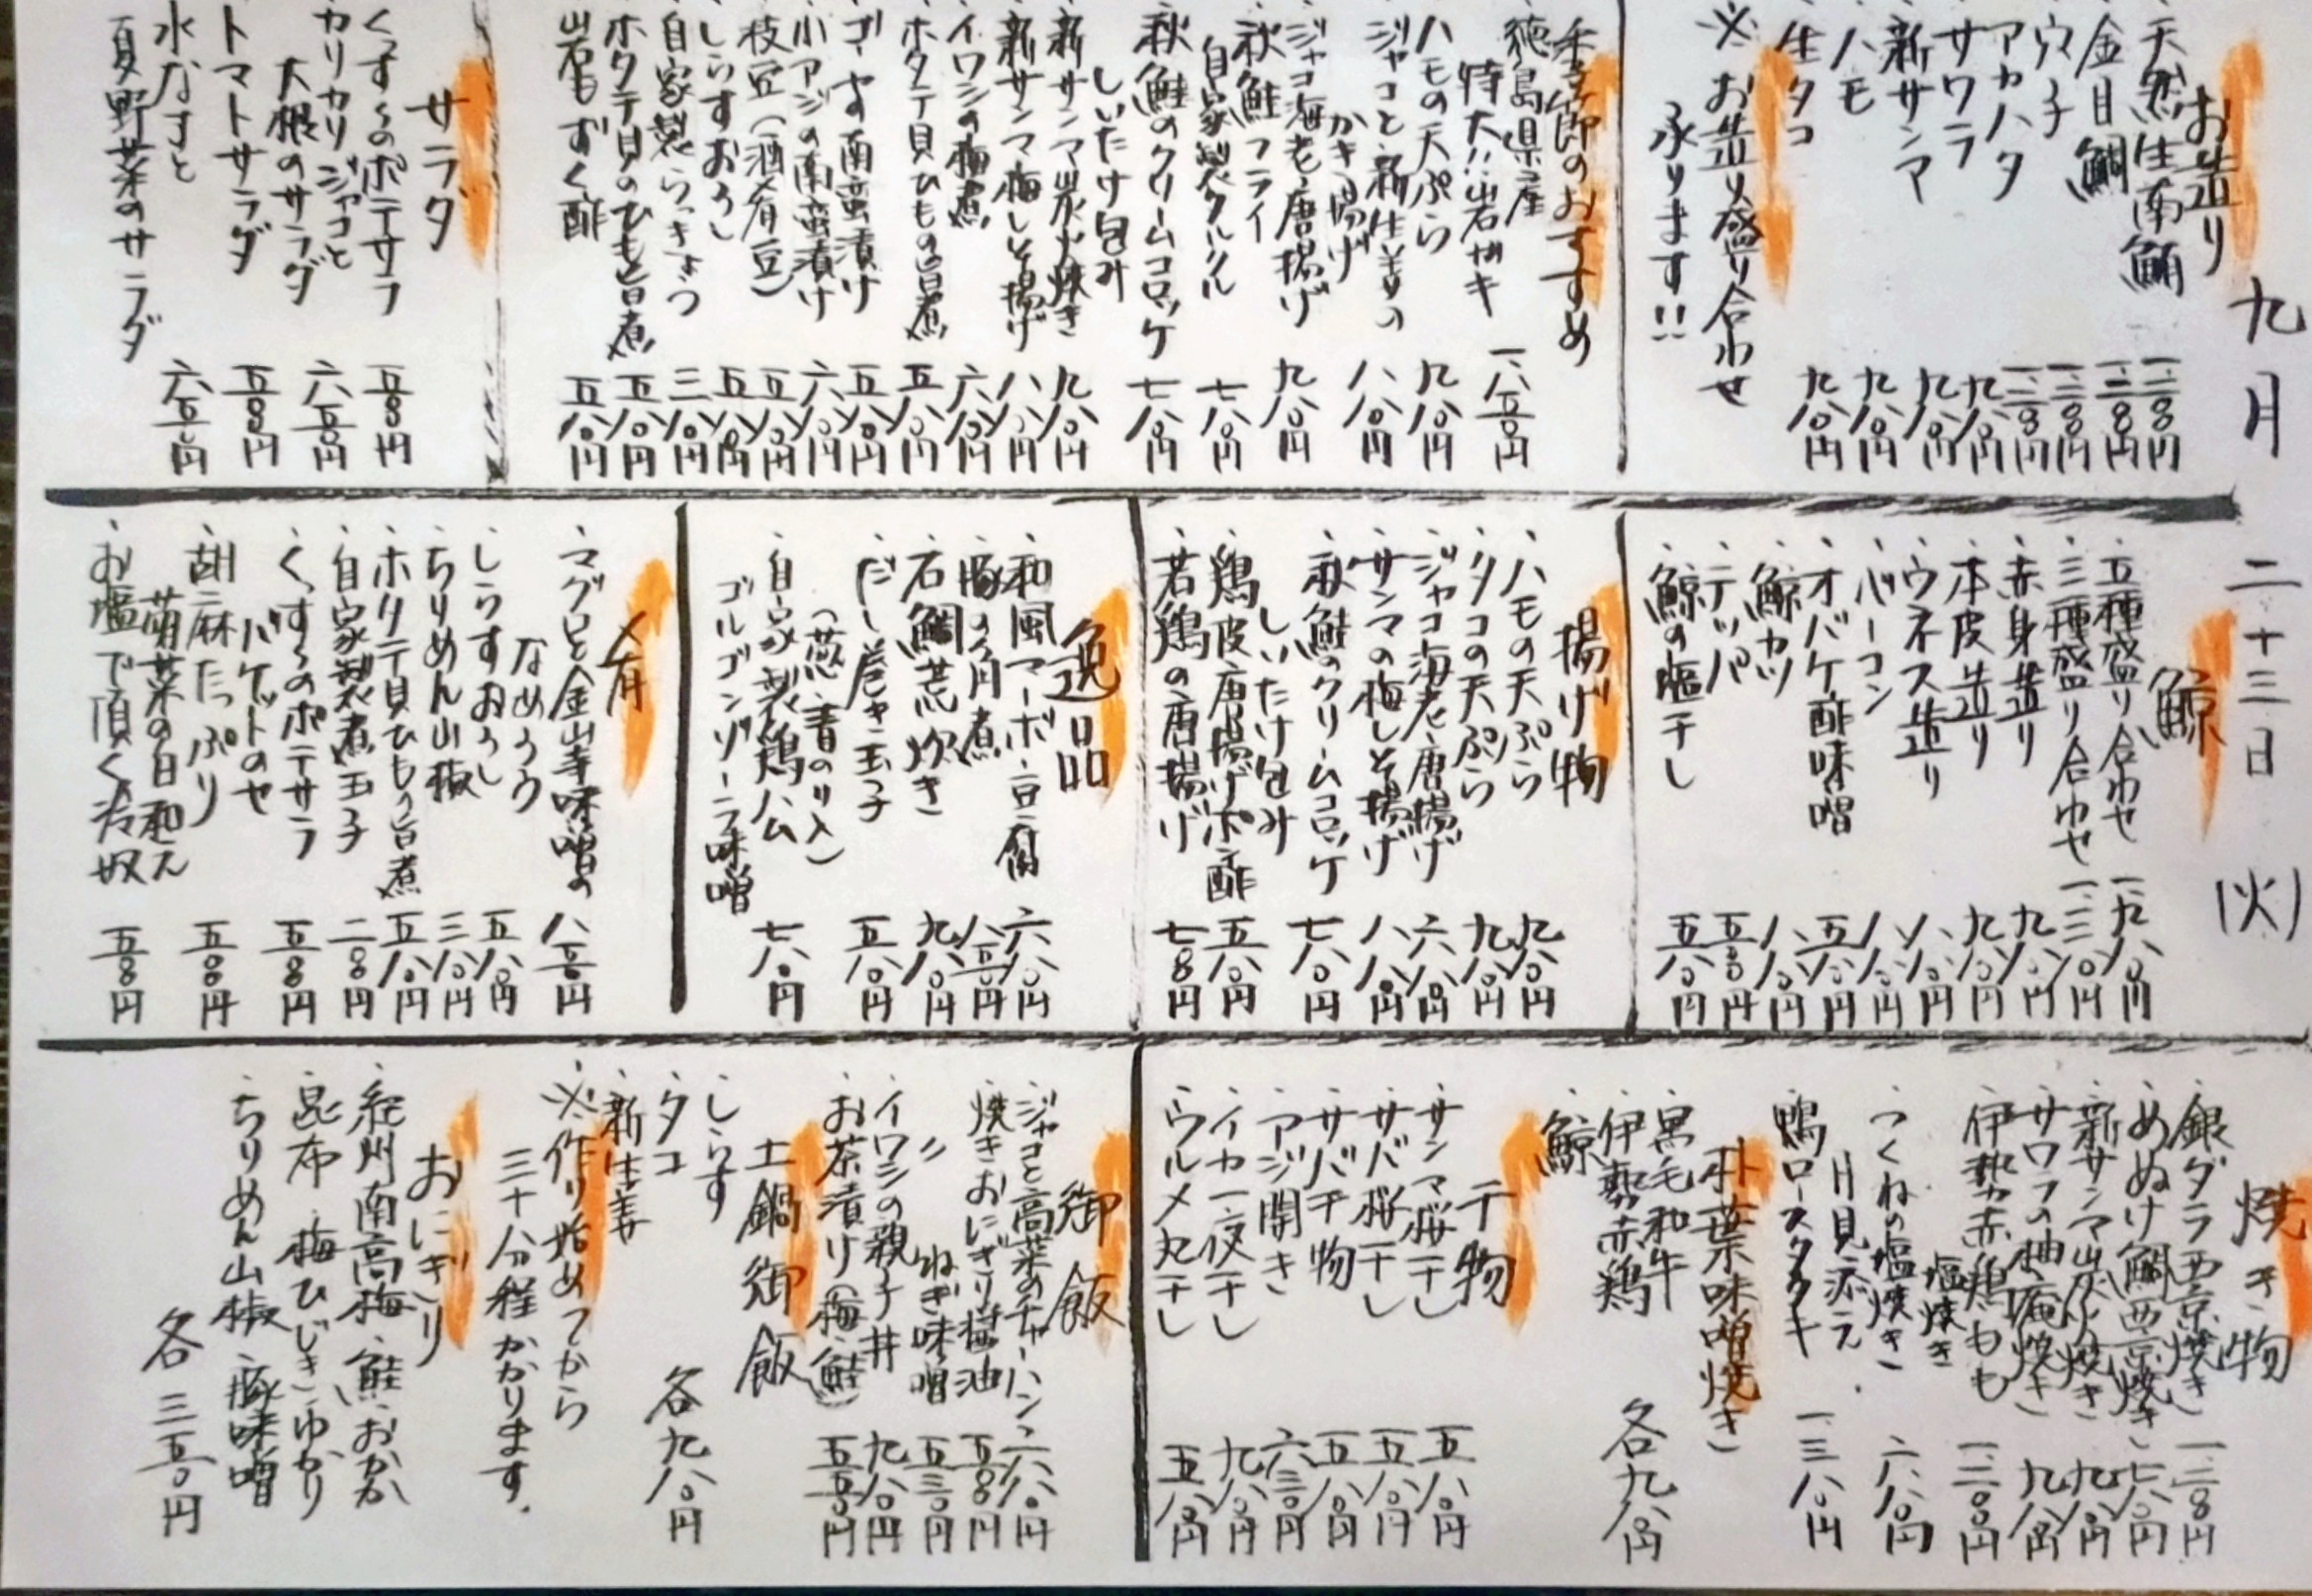 九月 二十三日 (火)
お造り
・天然生南鮪 一、二〇〇円
・金目鯛 一、二〇〇円
・穴子 一、二〇〇円
・アカハタ 一、二〇〇円
・サワラ 九八〇円
・新サンマ 九八〇円
・ハモ 九八〇円
・生タコ 九八〇円
※お造り盛り合わせ
承ります!!
季節のおすすめ
・徳島県産
特大!!岩ガキ 一、八五〇円
・ハモの天ぷら 九八〇円
・ジャコと新生姜の
かき揚げ 八八〇円
・ジャコ海老唐揚げ 九八〇円
・秋鮭フライ
自家製タルタル 七八〇円
・秋鮭のクリームコロッケ
しいたけ包み 七八〇円
・新サンマ炭火焼き 九八〇円
・新サンマ梅しそ揚げ 八八〇円
・イワシの梅煮 六八〇円
・ホタテ貝ひもの旨煮 五八〇円
・ゴーヤの南蛮漬け 五八〇円
・小アジの南蛮漬け 六八〇円
・枝豆(酒肴豆) 五八〇円
・しらすおろし 五八〇円
・自家製らっきょう 三八〇円
・ホタテ貝のひも旨煮 五八〇円
・岩もずく酢 五八〇円
サラダ
・くっすぅのポテサラ 五〇〇円
・カリカリジャコと
大根のサラダ 六五〇円
・トマトサラダ 五〇〇円
・水なすと
夏野菜のサラダ 六五〇円
鯨
・五種盛り合わせ 一、九八〇円
・三種盛り合わせ 一、三八〇円
・赤身造り 九八〇円
・本皮造り 九八〇円
・ウネス造り 八八〇円
・ベーコン 八八〇円
・オバケ酢味噌 五八〇円
・鯨カツ 八八〇円
・テッパ 五〇〇円
・鯨の塩干し 五八〇円
揚げ物
・ハモの天ぷら 九八〇円
・タコの天ぷら 九八〇円
・ジャコ海老唐揚げ 六八〇円
・サンマの梅しそ揚げ 八八〇円
・秋鮭のクリームコロッケ
しいたけ包み 七八〇円
・鶏皮唐揚げポン酢 五八〇円
・若鶏の唐揚げ 七〇〇円
逸品
・和風マーボー豆腐 六八〇円
・豚の角煮 八五〇円
・石鯛荒炊き 九八〇円
・だし巻き玉子
(葱・青のり入) 五八〇円
・自家製鶏ハム
ゴルゴンゾーラ味噌 七八〇円
肴
・マグロと金山寺味噌の
なめろう 八五〇円
・しらすおろし 五八〇円
・ちりめん山椒 三八〇円
・ホタテ貝ひもの旨煮 五八〇円
・自家製煮玉子 二〇〇円
・くっすぅのポテサラ
バケットのせ 五〇〇円
・胡麻たっぷり
菊菜の白和え 五〇〇円
・お塩で頂く冷奴 五〇〇円
焼き物
・銀ダラ西京焼き 一、二〇〇円
・めぬけ鯛西京焼き 七八〇円
・新サンマ炭火焼き 九八〇円
・サワラの柚庵焼き 九八〇円
・伊勢赤鶏もも
塩焼き 一、二〇〇円
・つくねの塩焼き
月見添え 六八〇円
・鴨ロースタタキ 一、三八〇円
朴葉味噌焼き
・黒毛和牛
・伊勢赤鶏
・鯨
各九八〇円
干物
・サンマ桜干し 五八〇円
・サバ桜干し 五八〇円
・サバ干物 五八〇円
・アジ開き 六三〇円
・イカ一夜干し 九八〇円
・ウルメ丸干し 五八〇円
御飯
・ジャコと高菜のチャーハン 六八〇円
・焼きおにぎり醤油 五〇〇円
〃 ねぎ味噌 五三〇円
・イワシの親子丼 九八〇円
・お茶漬け(梅・鮭) 五五〇円
土鍋御飯
・しらす
・タコ
・新生姜
各九八〇円
※作り始めてから
三十分程かかります.
おにぎり
・紀州南高梅・鮭・おかか
・昆布・梅ひじき・ゆかり
・ちりめん山椒・豚味噌
各三五〇円